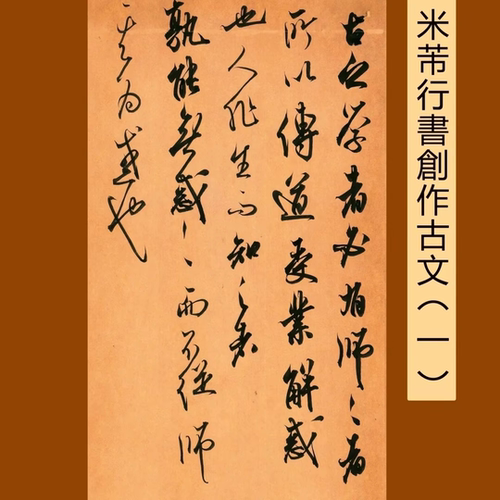 米芾行書創作古文(一)
古之學者必有師〻者
所以傳道受業解惑
也人非生而知之者
孰能無惑〻而不從師
其為惑也